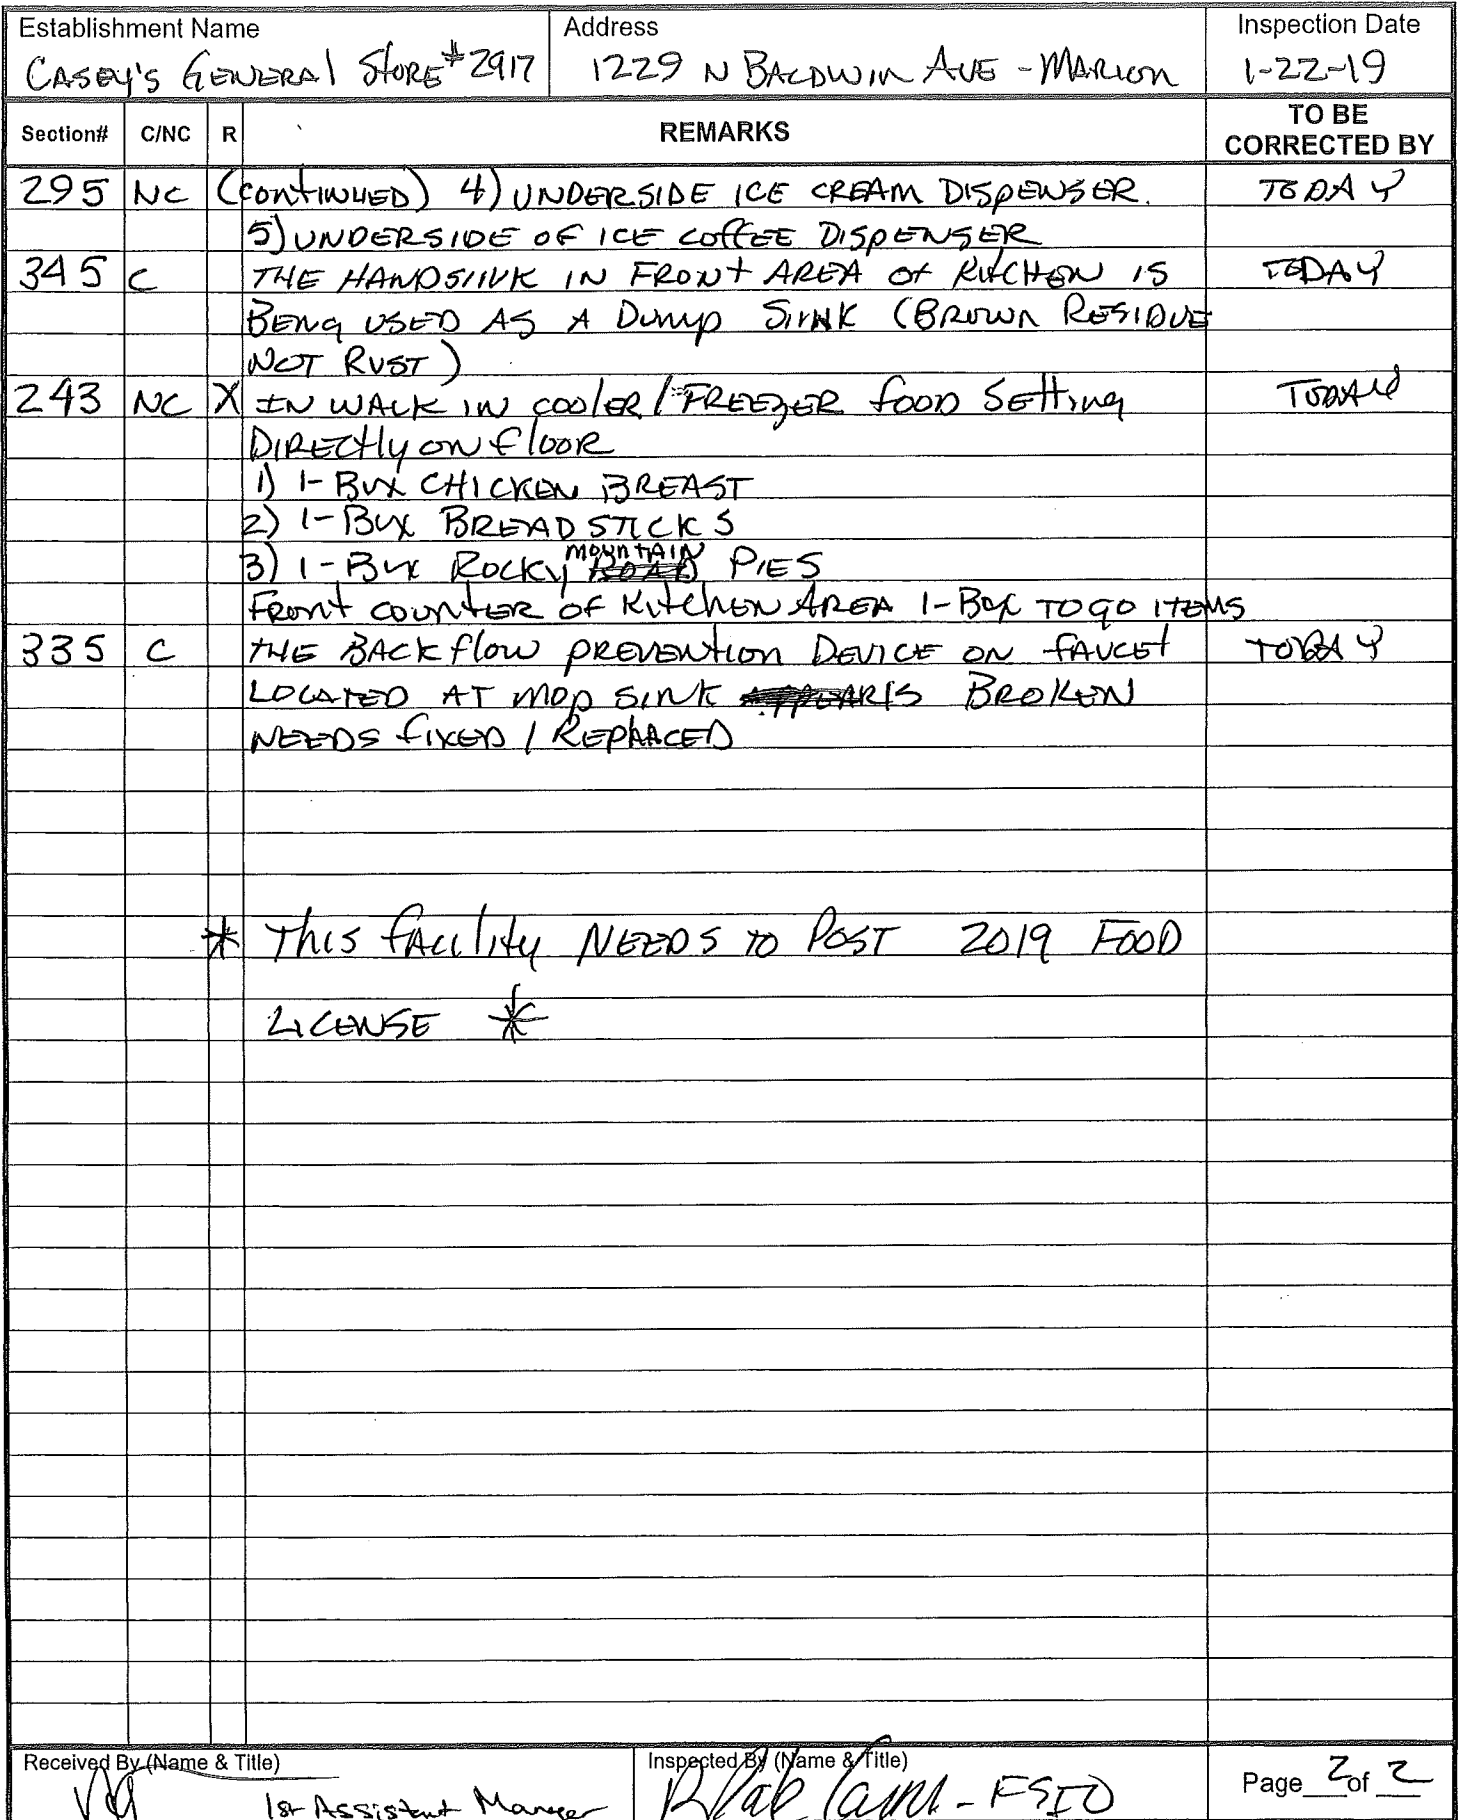 Establishment Name Address Inspection Date
CASEY'S GENERAL STORE #2917 1229 N BALDWIN AVE - MARION 1-22-19
Section# C/NC R REMARKS TO BE CORRECTED BY
295 NC (CONTINUED) 4) UNDERSIDE ICE CREAM DISPENSER. TODAY
5) UNDERSIDE OF ICE COFFEE DISPENSER
345 C THE HANDSINK IN FRONT AREA OF KITCHEN IS TODAY
BEING USED AS A DUMP SINK (BROWN RESIDUE
NOT RUST)
243 NC X IN WALK IN COOLER/FREEZER FOOD SETTING TODAY
DIRECTLY ON FLOOR
1) 1-BOX CHICKEN BREAST
2) 1-BOX BREADSTICKS
3) 1-BOX ROCKY MOUNTAIN PIES
FRONT COUNTER OF KITCHEN AREA 1-BOX TO GO ITEMS
335 C THE BACKFLOW PREVENTION DEVICE ON FAUCET TODAY
LOCATED AT MOP SINK IS BROKEN
NEEDS FIXED / REPLACED
* THIS FACILITY NEEDS TO POST 2019 FOOD
LICENSE *
Received By (Name & Title) Inspected By (Name & Title) Page 2 of 2
1st Assistant Manager - FSIO